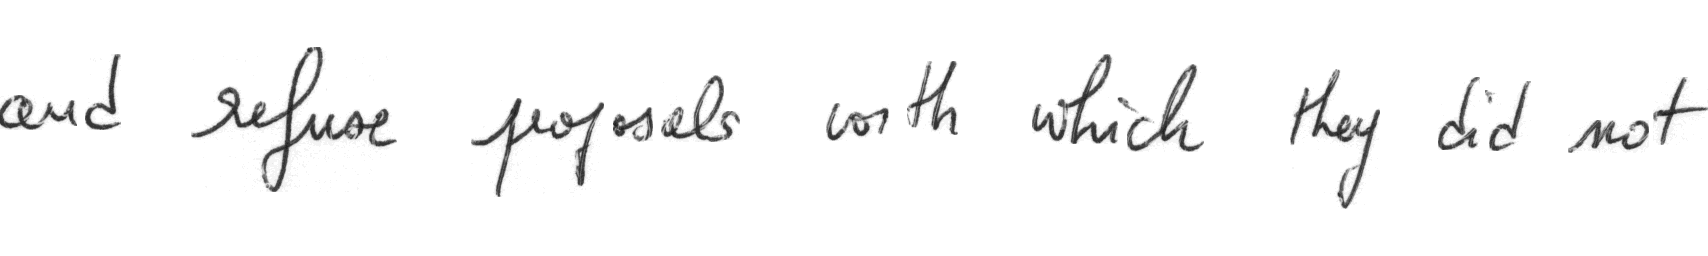 and refuse proposals with which they did not